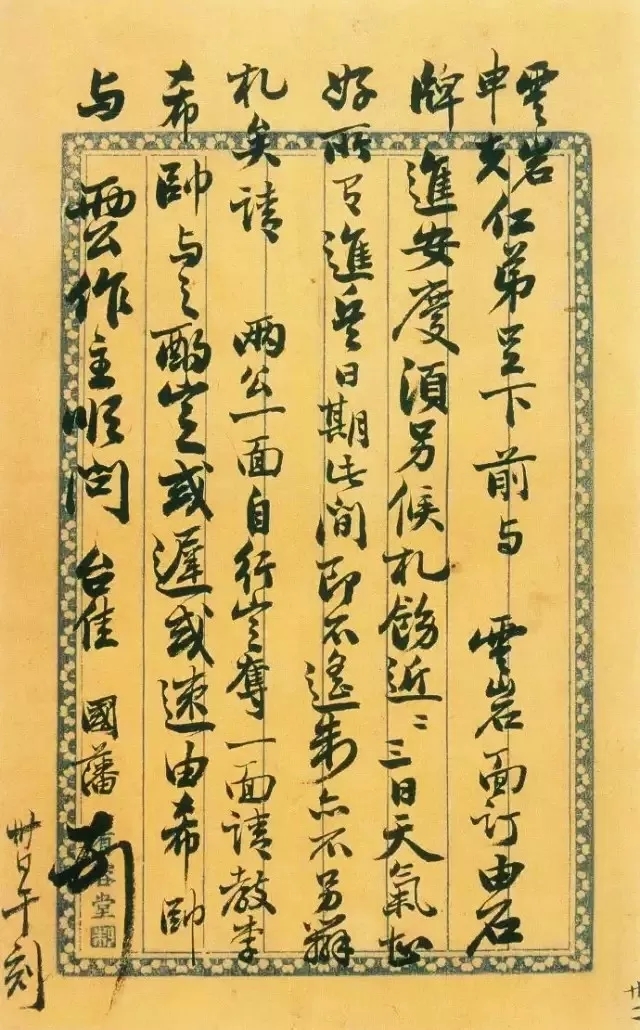 雲岩
申夫仁弟足下前与 雲岩面訂由石
牌進安慶須另候札飭近二三日天氣甚
好所有進兵日期此间即不遙制亦不另辦
札矣請 兩公一面自行定奪一面請教李
希帥与之酌定或遲或速由希帥
与 兩公作主順問 台佳 國藩
卅日午刻